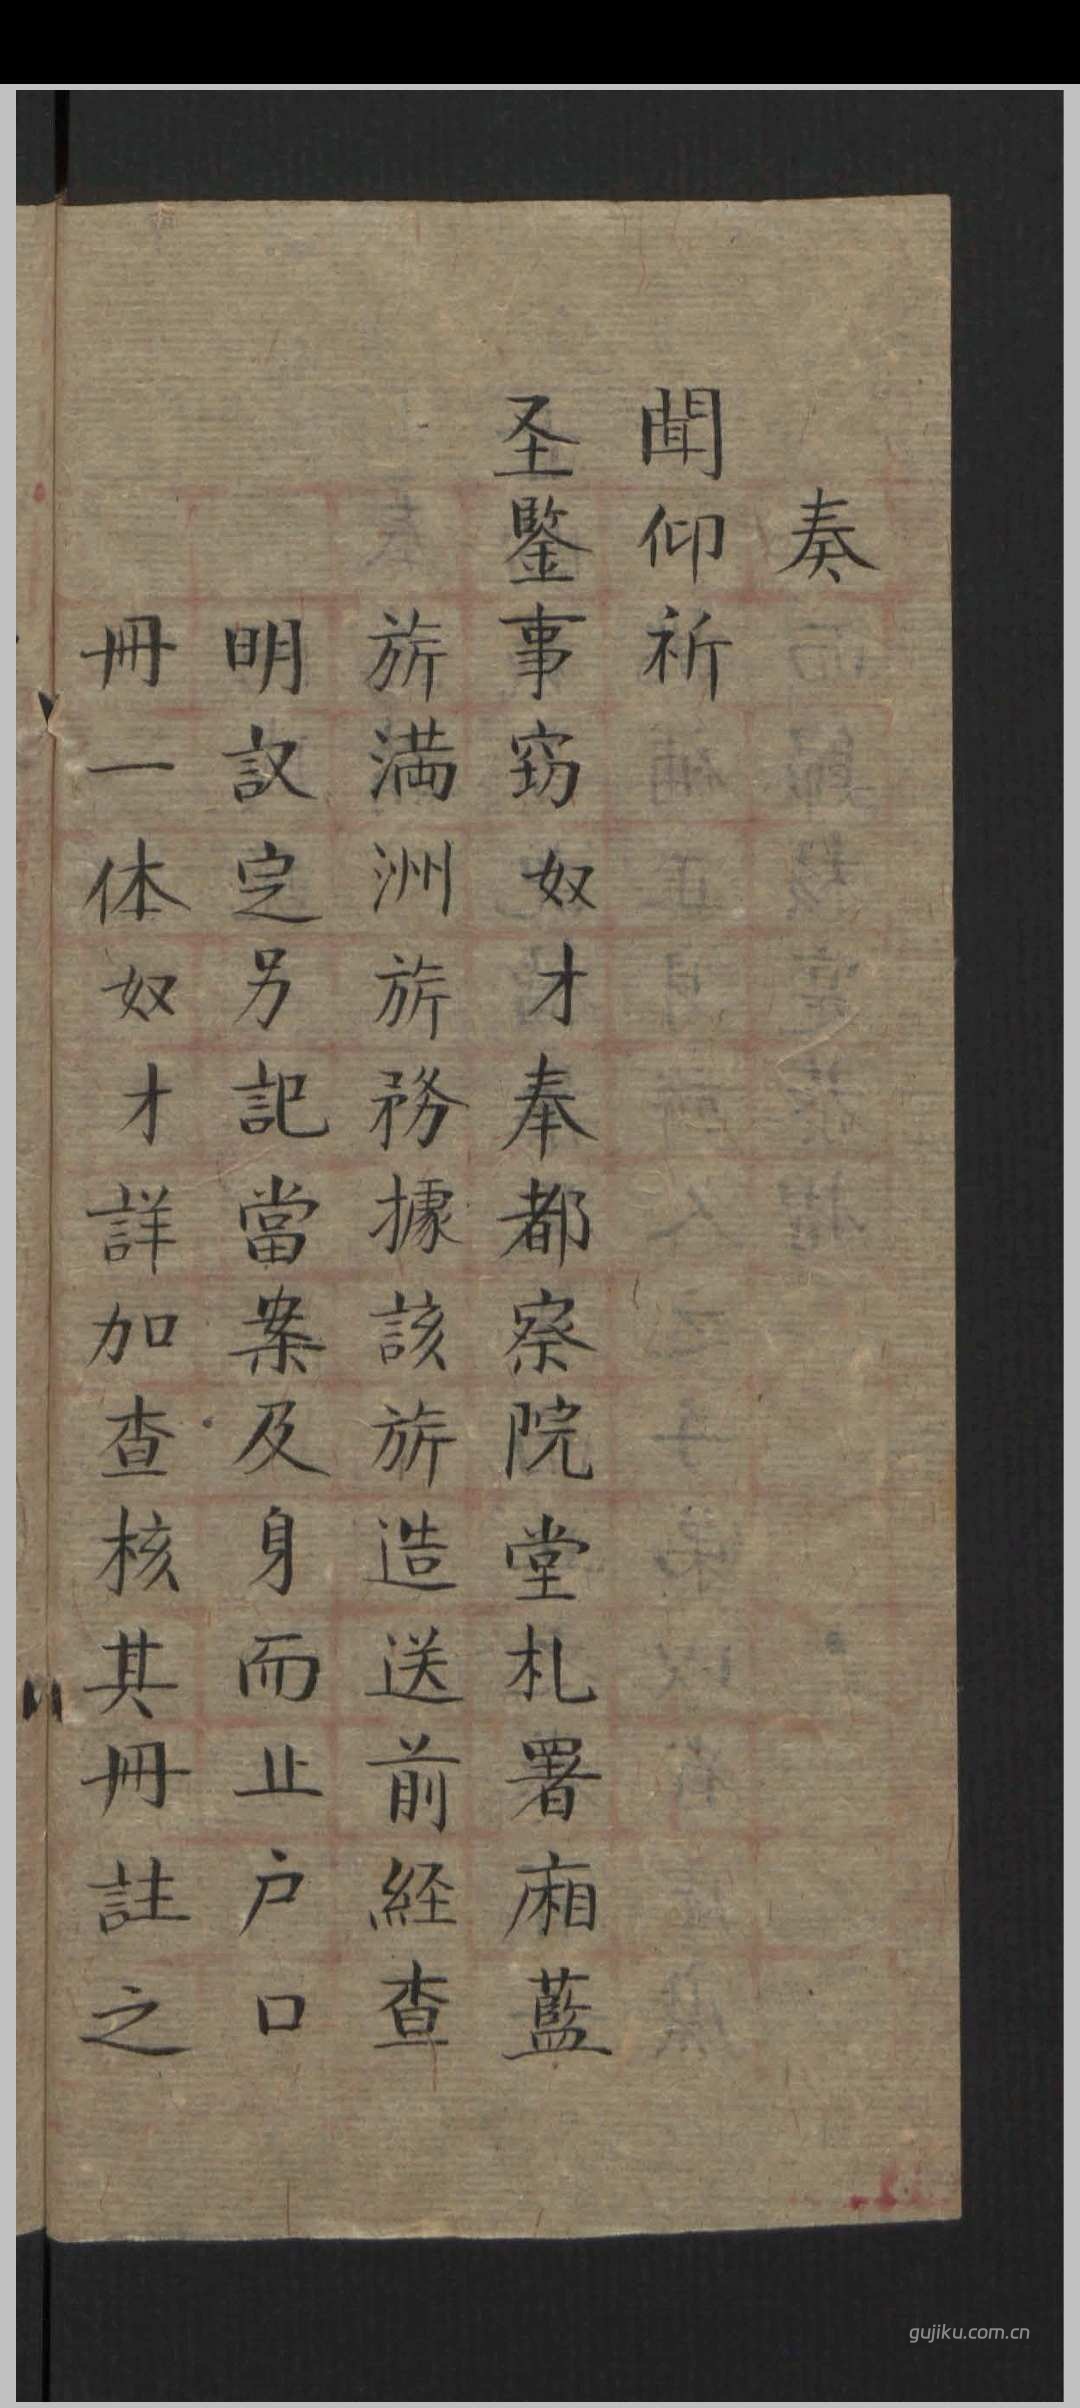 奏
聞仰祈
圣鑒事窃奴才奉都察院堂札署廂藍
旂満洲旂務據該旂造送前経查
明議定另記當案及身而止户口
冊一体奴才詳加查核其冊註之
gujiku.com.cn